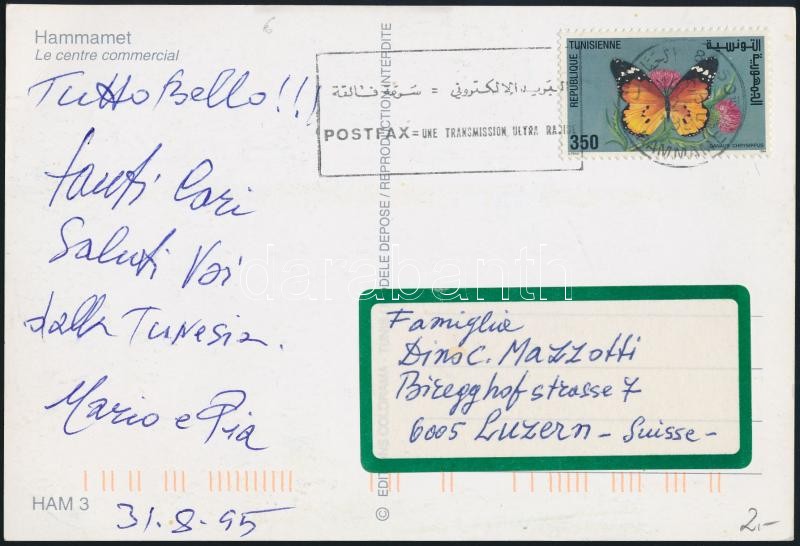 Hammamet
Le centre commercial
Tutto Bello!!!
tanti Cari
Saluti Voi
dalla Tunesia.
Mario e Pia
31.8.95
HAM 3
6
سرعة فائقة = البريد الإلكتروني
POSTFAX = UNE TRANSMISSION ULTRA RAPIDE
REPUBLIQUE TUNISIENNE
الجمهورية التونسية
350
DANAUS CHRYSIPPUS
HAMMAMET
© EDITIONS COLORAMA - TUNIS
MODELE DEPOSE / REPRODUCTION INTERDITE
darabanth
Famiglia
Dino C. Mazzotti
Biregghofstrasse 7
6005 Luzern - Suisse -
2.-